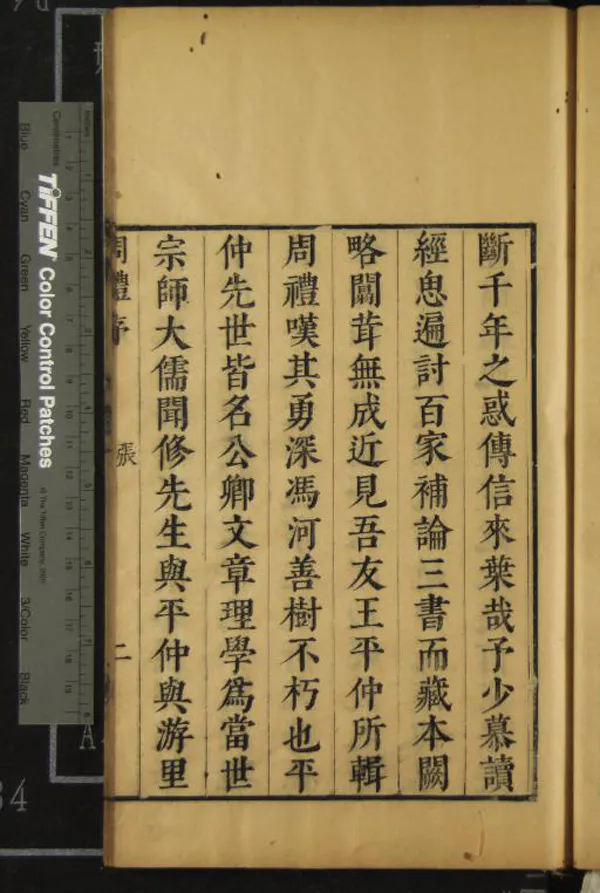 斷千年之惑傳信來葉哉予少慕讀
經思遍討百家補論三書而藏本闕
略闒茸無成近見吾友王平仲所輯
周禮嘆其勇深馮河善樹不朽也平
仲先世皆名公卿文章理學爲當世
宗師大儒聞修先生與平仲與游里
周禮序
張
二
TIFFEN Color Control Patches
© The Tiffen Company, 2000
Centimetres
Inches
Blue
Cyan
Green
Yellow
Red
Magenta
White
3/Color
Black